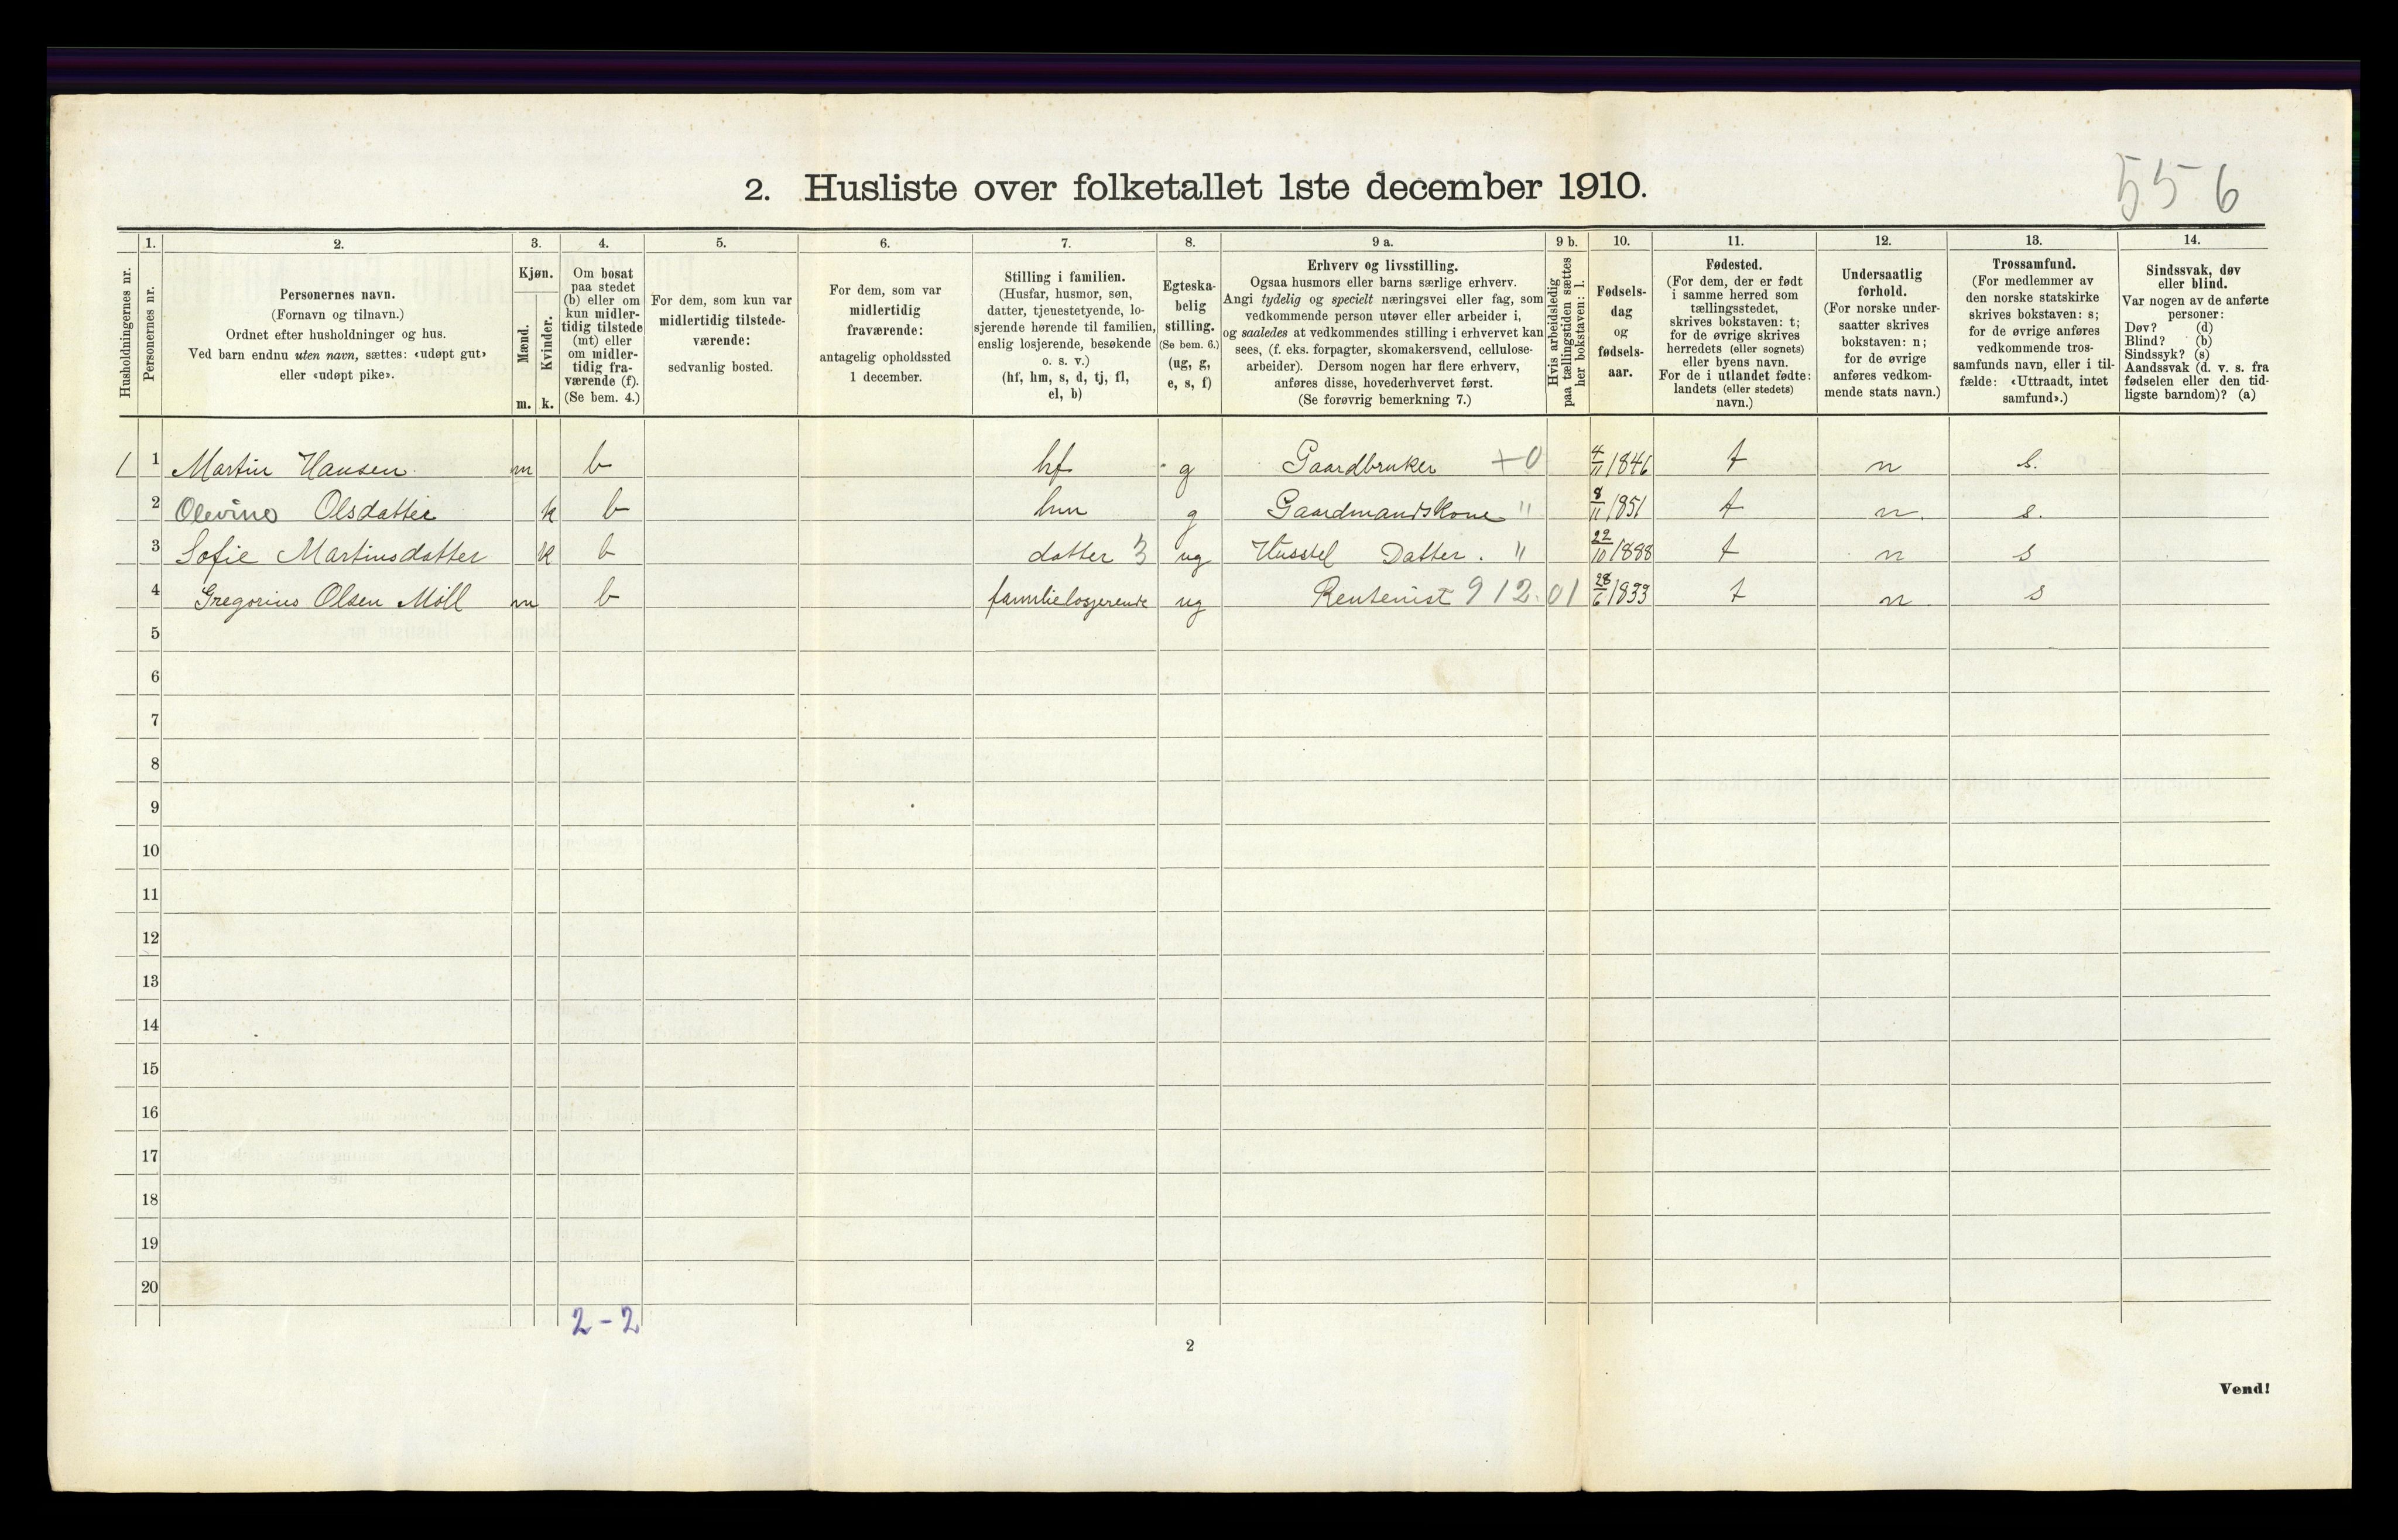 556
2. Husliste over folketallet 1ste december 1910.
1. 2. 3. 4. 5. 6. 7. 8. 9 a. 9 b. 10. 11. 12. 13. 14.
Husholdningernes nr.
Personernes nr.
Personernes navn.
(Fornavn og tilnavn.)
Ordnet efter husholdninger og hus.
Ved barn endnu uten navn, sættes: «udøpt gut»
eller «udøpt pike».
Kjøn.
Mænd.
Kvinder.
m. k.
Om bosat
paa stedet
(b) eller om
kun midler-
tidig tilstede
(mt) eller
om midler-
tidig fra-
værende (f).
(Se bem. 4.)
For dem, som kun var
midlertidig tilstede-
værende:
sedvanlig bosted.
For dem, som var
midlertidig
fraværende:
antagelig opholdssted
1 december.
Stilling i familien.
(Husfar, husmor, søn,
datter, tjenestetyende, lo-
sjerende hørende til familien,
enslig losjerende, besøkende
o. s. v.)
(hf, hm, s, d, tj, fl,
el, b)
Egteska-
belig
stilling.
(Se bem. 6.)
(ug, g,
e, s, f)
Erhverv og livsstilling.
Ogsaa husmors eller barns særlige erhverv.
Angi tydelig og specielt næringsvei eller fag, som
vedkommende person utøver eller arbeider i,
og saaledes at vedkommendes stilling i erhvervet kan
sees, (f. eks. forpagter, skomakersvend, cellulose-
arbeider). Dersom nogen har flere erhverv,
anføres disse, hovederhvervet først.
(Se forøvrig bemerkning 7.)
Hvis arbeidsledig
paa tællingstiden sættes
her bokstaven: l.
Fødsels-
dag
og
fødsels-
aar.
Fødested.
(For dem, der er født
i samme herred som
tællingsstedet,
skrives bokstaven: t;
for de øvrige skrives
herredets (eller sognets)
eller byens navn.
For de i utlandet fødte:
landets (eller stedets)
navn.)
Undersaatlig
forhold.
(For norske under-
saatter skrives
bokstaven: n;
for de øvrige
anføres vedkom-
mende stats navn.)
Trossamfund.
(For medlemmer av
den norske statskirke
skrives bokstaven: s;
for de øvrige anføres
vedkommende tros-
samfunds navn, eller i til-
fælde: «Uttraadt, intet
samfund».)
Sindssvak, døv
eller blind.
Var nogen av de anførte
personer:
Døv? (d)
Blind? (b)
Sindssyk? (s)
Aandssvak (d. v. s. fra
fødselen eller den tid-
ligste barndom)? (a)
1 1 Martin Hansen m b hf g Gaardbruker +0 4/11 1846 t n s.
2 Olevine Olsdatter k b hm g Gaardmandskone " 8/11 1851 t n. s.
3 Sofie Martinsdatter k b datter 3 ug Husstel Datter. " 22/10 1888 t n s
4 Gregorius Olsen Moll m b familielosjerende ug Rentenist 912.01 28/6 1833 t n. s
5
6
7
8
9
10
11
12
13
14
15
16
17
18
19
20
2-2
2
Vend!